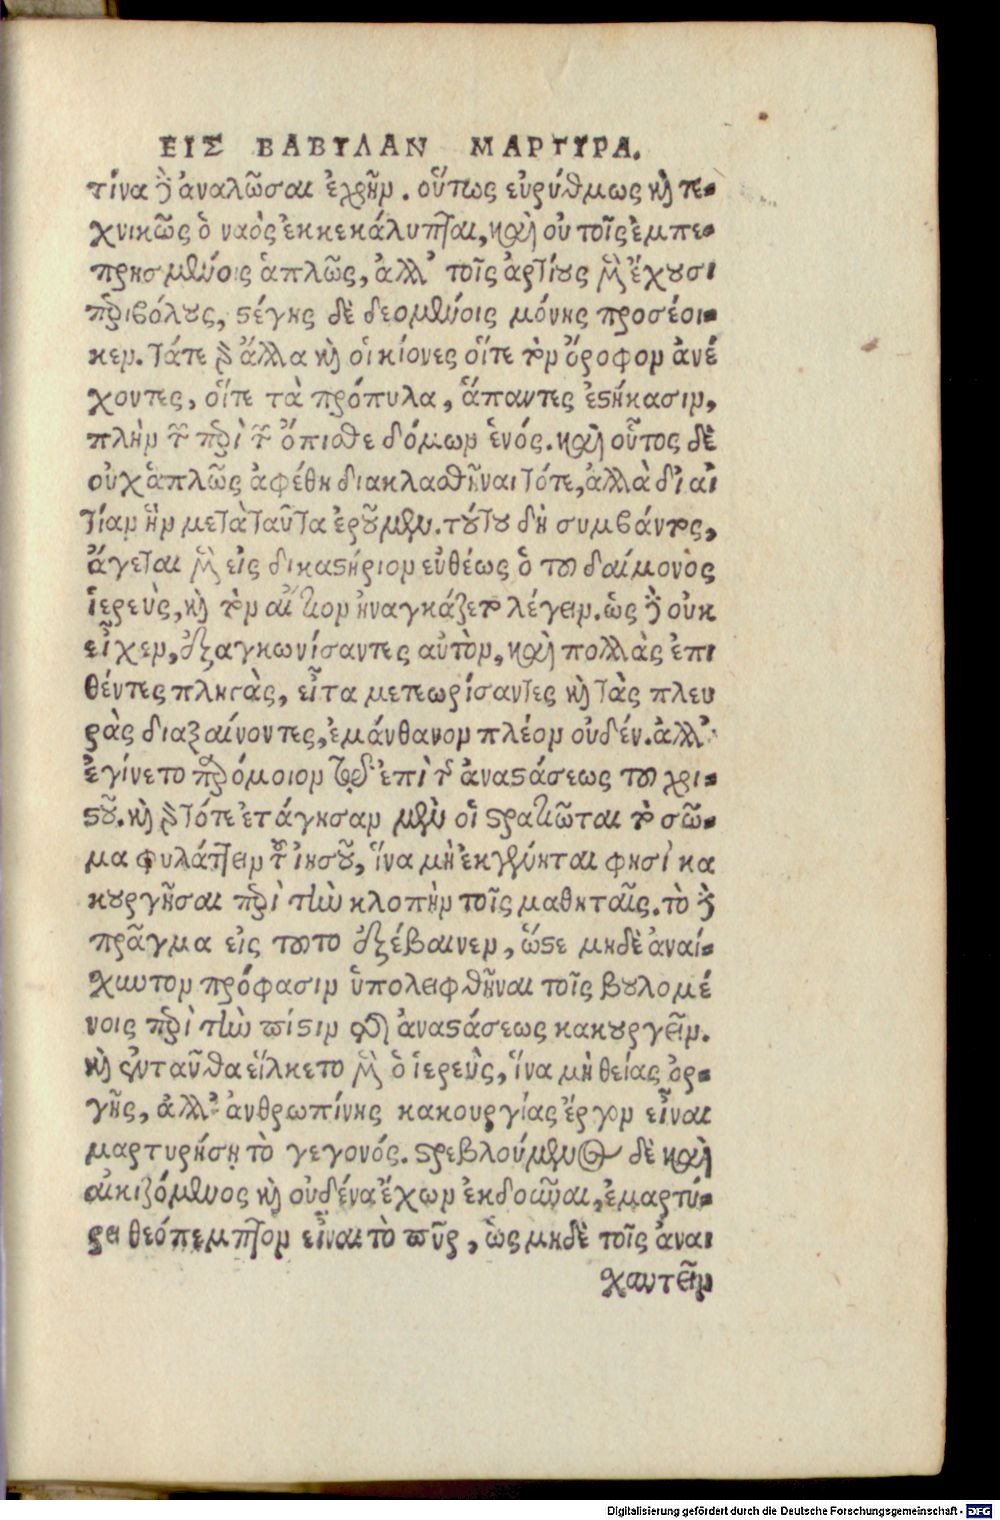 ΕΙΣ ΒΑΒΥΛΑΝ ΜΑΡΤΥΡΑ.
τίνα δὲ ἀναλῶσαι ἐχρῆν. οὕτως εὐρύθμως καὶ τε-
χνικῶς ὁ ναὸς ἐκκεκάλυπται, καὶ οὐ τοῖς ἐμπε-
πρησμένοις ἁπλῶς, ἀλλ' τοῖς ἀρτίους μὲν ἔχουσι
περιβόλους, στέγης δὲ δεομένοις μόνης προσέοι-
κεν. τάτε γὰρ ἄλλα καὶ οἱ κίονες οἵτε τὸν ὄροφον ἀνέ
χοντες, οἵτε τὰ πρόπυλα, ἅπαντες ἑστήκασιν,
πλὴν τοῦ περὶ τὸν ὄπισθε δόμων ἑνός. καὶ οὗτος δὲ
οὐχ ἁπλῶς ἀφέθη διακλασθῆναι τότε, ἀλλὰ δι αἰ
τίαν ἣν μετὰ ταῦτα ἐροῦμεν. τούτου δὴ συμβάντος,
ἄγεται μὲν εἰς δικαστήριον εὐθέως ὁ τοῦ δαίμονος
ἱερεὺς, καὶ τὸν αἴτιον ἠναγκάζετο λέγειν. ὡς δὲ οὐκ
εἶχεν, ἐξαγκωνίσαντες αὐτὸν, καὶ πολλὰς ἐπι
θέντες πληγὰς, εἶτα μετεωρίσαντες καὶ τὰς πλευ
ρὰς διαξαίνοντες, ἐμάνθανον πλέον οὐδέν. ἀλλ'
ἐγίνετο παρόμοιον τῷ ἐπὶ τῆς ἀναστάσεως τοῦ χρι-
στοῦ. καὶ γὰρ τότε ἐτάγησαν μὲν οἱ στρατιῶται τὸ σῶ-
μα φυλάττειν τοῦ ἰησοῦ, ἵνα μὴ ἐκγένηται φησὶ κα
κουργῆσαι περὶ τὴν κλοπὴν τοῖς μαθηταῖς. τὸ δὲ
πρᾶγμα εἰς τοῦτο ἐξέβαινεν, ὥστε μηδὲ ἀναί-
σχυντον πρόφασιν ὑπολειφθῆναι τοῖς βουλομέ
νοις περὶ τὴν πίστιν τῆς ἀναστάσεως κακουργεῖν.
καὶ ἐνταῦθα εἵλκετο μὲν ὁ ἱερεὺς, ἵνα μὴ θείας ὀρ-
γῆς, ἀλλ' ἀνθρωπίνης κακουργίας ἔργον εἶναι
μαρτυρήσῃ τὸ γεγονός. στρεβλούμενος δὲ καὶ
αἰκιζόμενος καὶ οὐδένα ἔχων ἐκδοῦναι, ἐμαρτύ-
ρει θεόπεμπτον εἶναι τὸ πῦρ, ὡς μηδὲ τοῖς ἀναι
σχυντεῖν
Digitalisierung gefördert durch die Deutsche Forschungsgemeinschaft - DFG